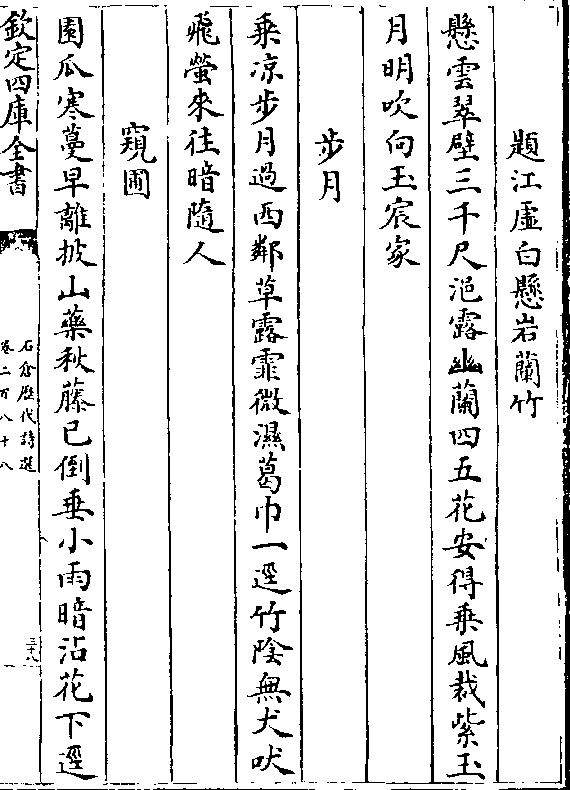 題江虛白懸岩蘭竹
懸雲翠壁三千尺浥露幽蘭四五花安得乗風裁紫玉
月明吹向玉宸家
步月
乗凉步月過西鄰草露霏微濕葛巾一逕竹陰無犬吠
飛螢來往暗隨人
窺圃
園瓜寒蔓早離披山藥秋藤已倒垂小雨暗沾花下逕
欽定四庫全書
石倉歴代詩選
卷二百八十八
三十八